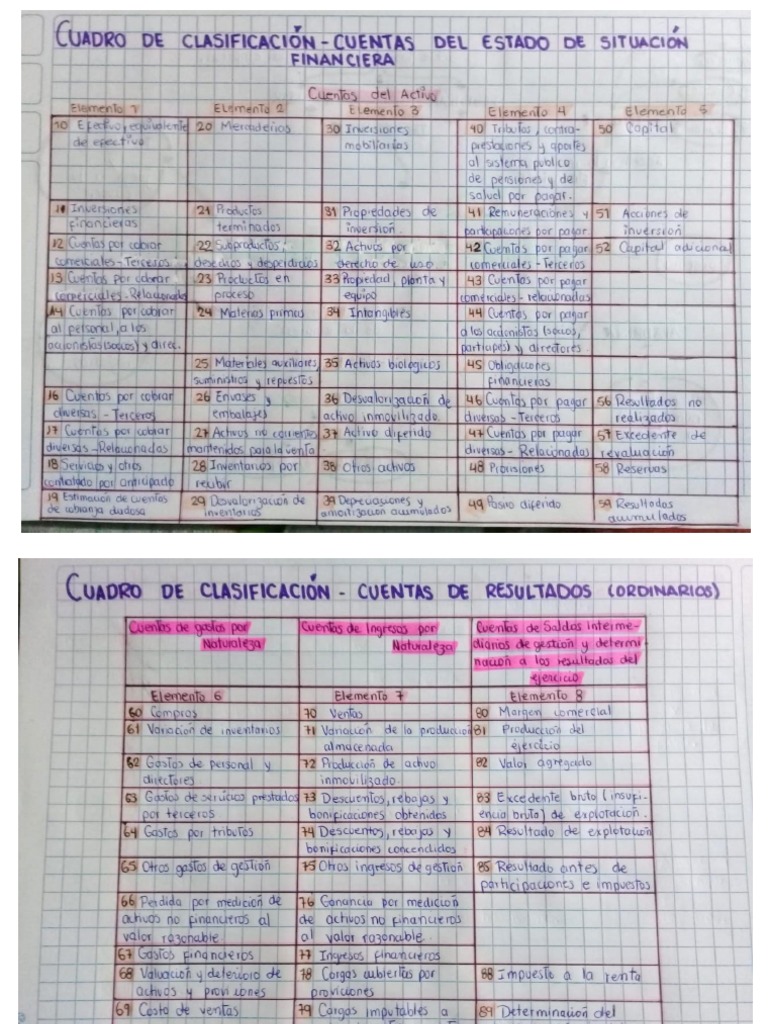 CUADRO DE CLASIFICACIÓN - CUENTAS DEL ESTADO DE SITUACIÓN
FINANCIERA
Cuentas del Activo
Elemento 1
Elemento 2
Elemento 3
Elemento 4
Elemento 5
10 Efectivo, equivalente
de efectivo
20 Mercaderias
30 Inversiones
mobiliarias
40 Tributos, contra-
prestaciones y aportes
al sistema publico
de pensiones y de
salud por pagar.
50 Capital
11 Inversiones
financieras
21 Productos
terminados
31 Propiedades de
inversión.
41 Remuneraciones y
participaciones por pagar.
51 Acciones de
inversión
12 Cuentas por cobrar
comerciales-Terceros
22 Subproductos,
desechos y desperdicios
32 Activos por
derecho de uso
42 Cuentas por pagar
comerciales - Terceros
52 Capital adicional
13 Cuentas por cobrar
comerciales-Relacionadas
23 Productos en
proceso
33 Propiedad, planta y
equipo
43 Cuentas por pagar
comerciales - relacionadas
14 Cuentas por cobrar
al personal, a los
accionistas (socios) y direc.
24 Materias primas
34 Intangibles
44 Cuentas por pagar
a los accionistas (socios,
participes) y directores.
25 Materiales auxiliares,
suministros y repuestos
35 Activos biológicos
45 Obligaciones
financieras
16 Cuentas por cobrar
diversas - Terceros
26 Envases y
embalajes
36 Desvalorización de
activo inmovilizado
46 Cuentas por pagar
diversas - Terceros
56 Resultados no
realizados
17 Cuentas por cobrar
diversas-Relacionadas
27 Activos no corrientes
mantenidos para la venta
37 Activo diferido
47 Cuentas por pagar
diversas - Relacionadas
57 Excedente de
revaluación
18 Servicios y otros
contratado por anticipado
28 Inventarios por
recibir
38 Otros activos
48 Provisiones
58 Reservas
19 Estimación de cuentas
de cobranza dudosa
29 Desvalorización de
inventarios
39 Depreciaciones y
amortización acumulados
49 Pasivo diferido
59 Resultados
acumulados
CUADRO DE CLASIFICACIÓN - CUENTAS DE RESULTADOS (ORDINARIOS)
Cuentas de gastos por
Naturaleza
Cuentas de Ingresos por
Naturaleza
Cuentas de Saldos Interme-
diarios de gestión y determi-
nación a los resultados del
ejercicio
Elemento 6
Elemento 7
Elemento 8
60 Compras
70 Ventas
80 Margen comercial
61 Variación de inventarios
71 Variación de la producción
almacenada
81 Producción del
ejercicio
62 Gastos de personal y
directores
72 Producción de activo
inmovilizado.
82 Valor agregado
63 Gastos de servicios prestados
por terceros
73 Descuentos, rebajas y
bonificaciones obtenidos
83 Excedente bruto (insufi-
ciencia bruto) de explotación.
64 Gastos por tributos
74 Descuentos, rebajas y
bonificaciones concendidos
84 Resultado de explotación
65 Otros gastos de gestión
75 Otros ingresos de gestión
85 Resultado antes de
participaciones e impuestos
66 Perdida por medición de
activos no financieros al
valor razonable
76 Ganancia por medición
de activos no financieros
al valor razonable.
67 Gastos financieros
77 Ingresos financieros
68 Valuación y deterioro de
activos y proviciones
78 Cargas cubiertas por
proviciones
88 Impuesto a la renta
69 Costo de ventas
79 Cargas imputables a
89 Determinación del